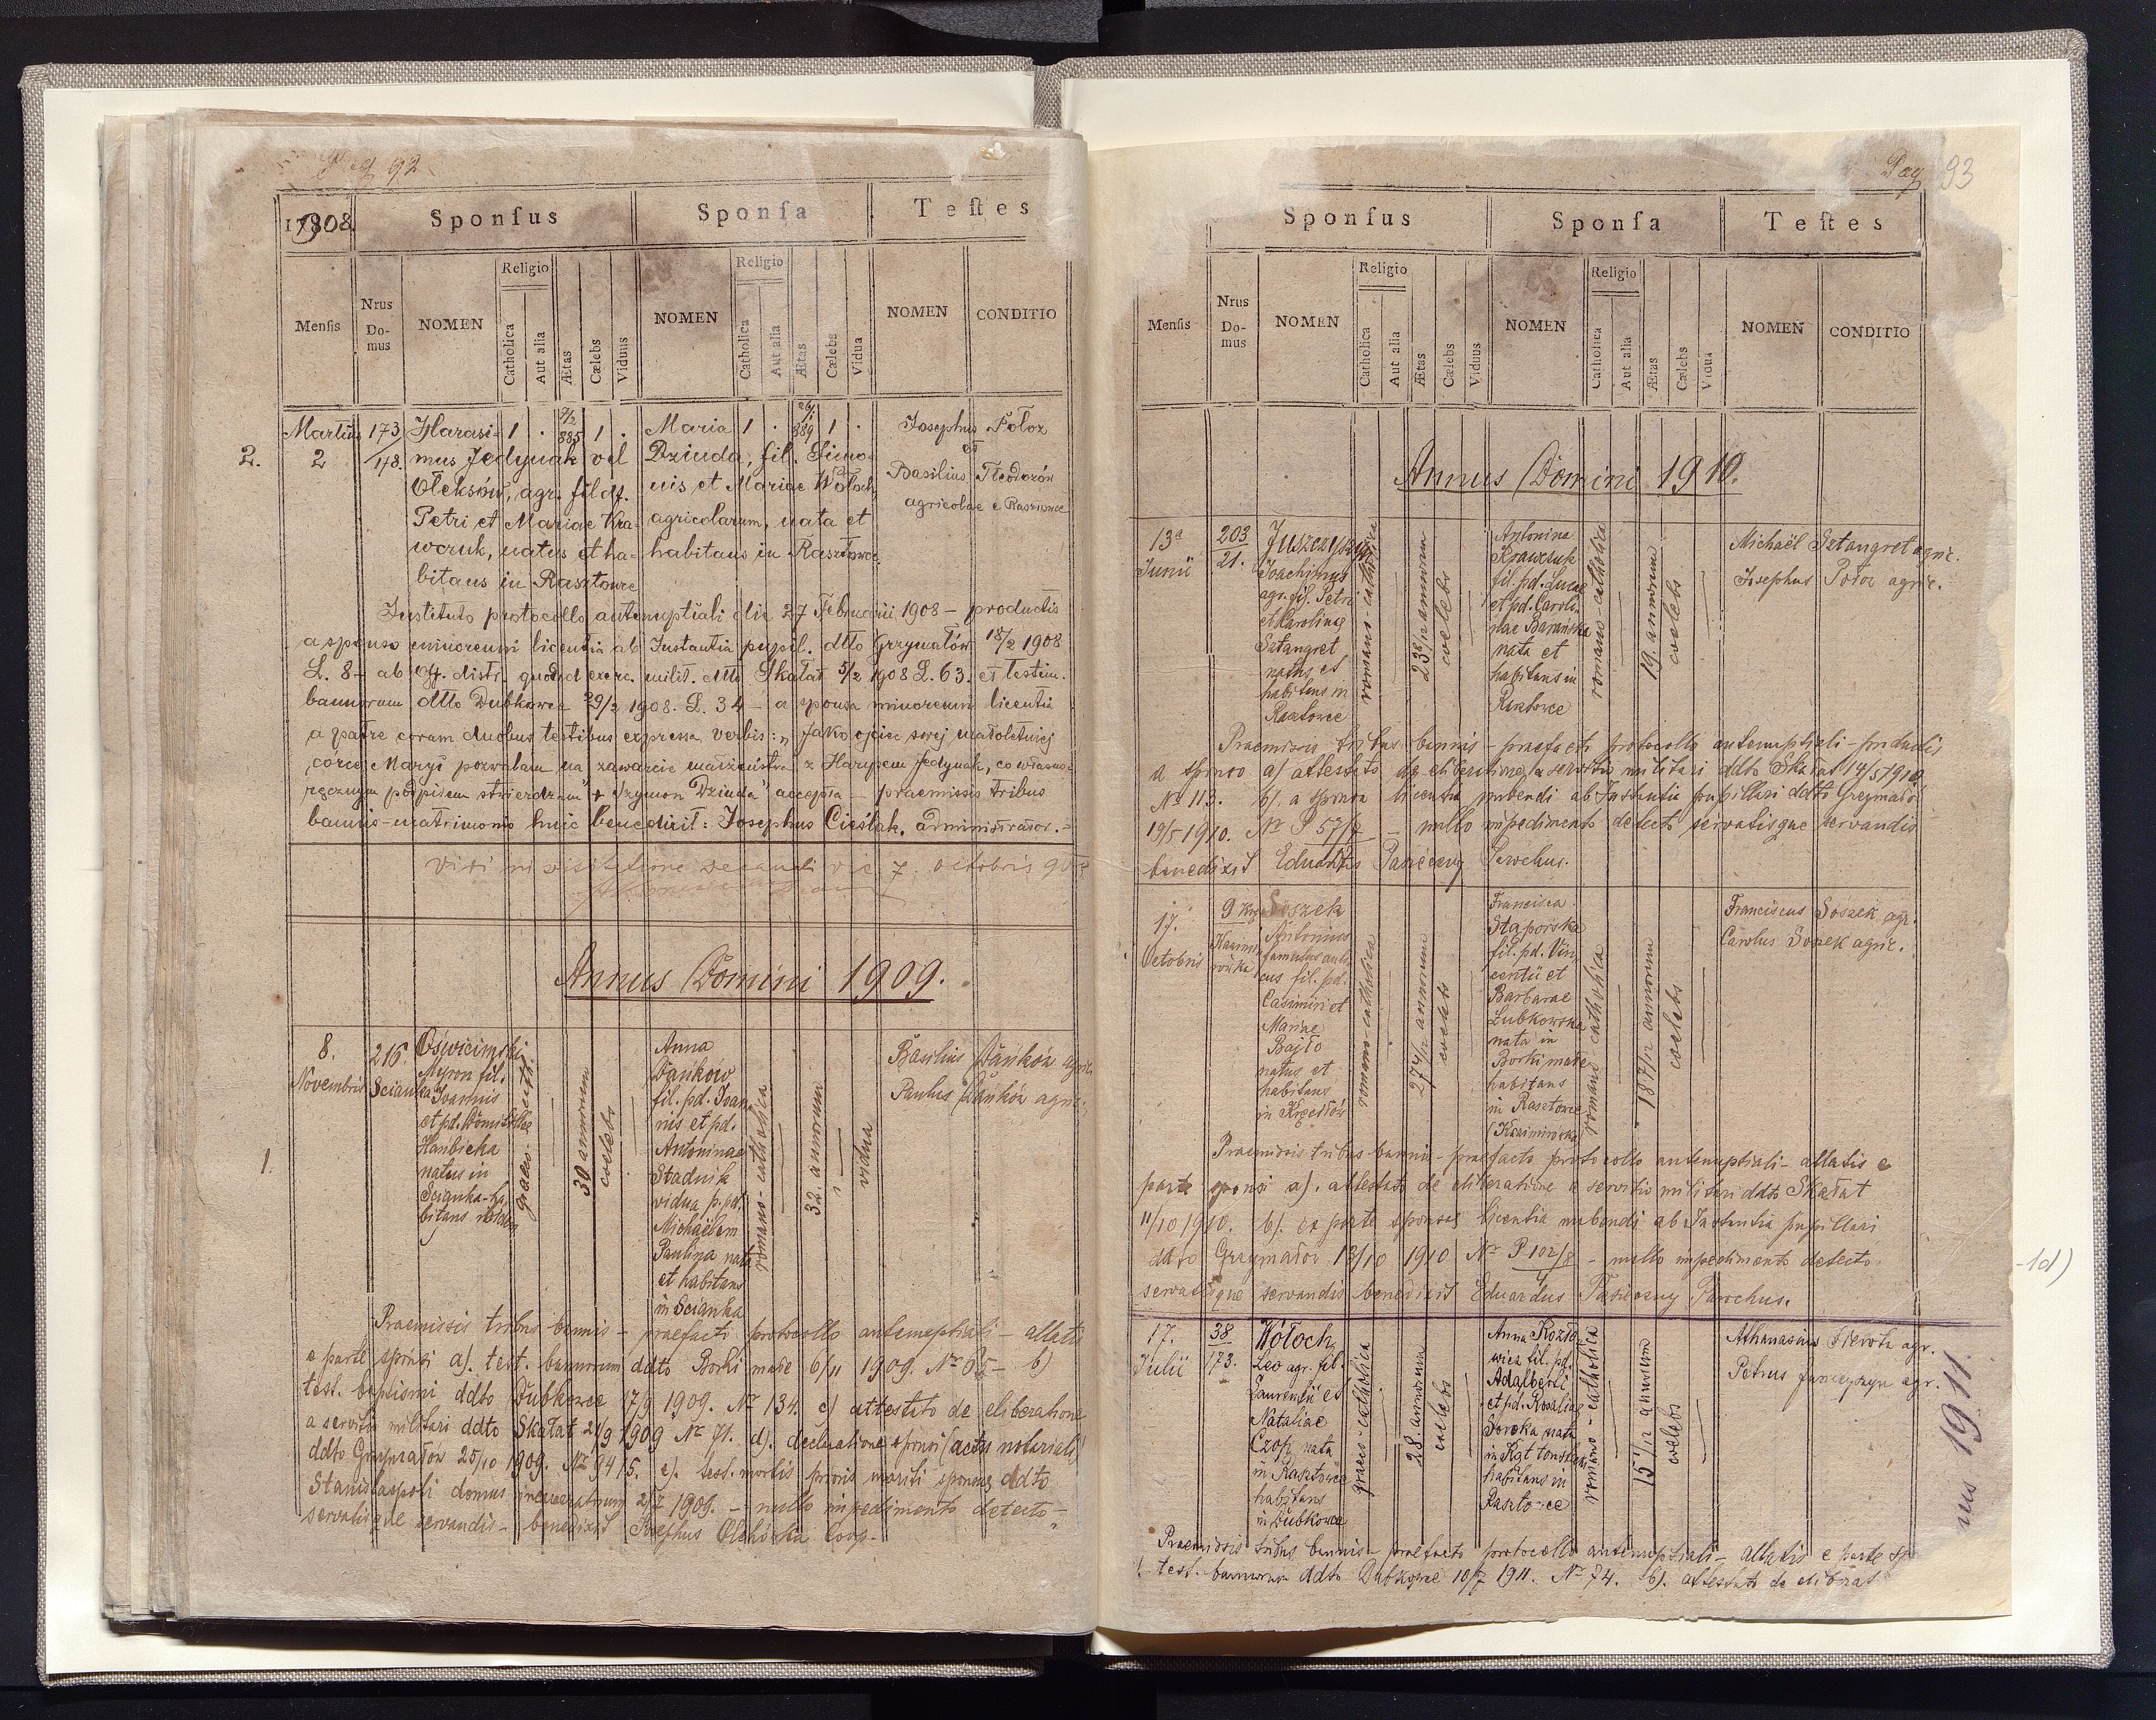 Pag 92
1908.
Sponſus
Sponſa
Teſtes
Menſis
Nrus Domus
NOMEN
Religio
Catholica
Aut alia
Ætas
Cælebs
Viduus
NOMEN
Religio
Catholica
Aut alia
Ætas
Cælebs
Vidua
NOMEN
CONDITIO
2.
Martius
2
173/
178.
Harasi- 1 . 9/2 885 1 .
mus Jedynak vel
Oleksów, agr. fil.
Petri et Mariae Kra-
wczuk, natus et ha-
bitans in Rasztowce
Maria 1 . 26/1 889 1 .
Dziuda, fil. Simo-
nis et Mariae Wołoch
agricolarum, nata et
habitans in Rasztowce
Josephus Połoz
et
Basilius Fteodorów
agricolae e Rasztowce
Instituto protocollo antenuptiali die 27 Februarii 1908 – productis
a sponso minorenni licentia ab Instantia pupil. dtto Grzymałów 18/2 1908
L. 8 – ab Off. distr. quoad exerc. milit. dtto Skałat 5/2 1908 L. 63. et testim.
bannorum dtto Dubkowce 29/2 1908. L. 34 – a sponsa minorenni licentia
a patre coram duobus testibus expressa verbis: „Jako ojciec swej małoletniej
córce Maryi pozwalam na zawarcie małżeństwa z Harysem Jedynak, co własno-
ręcznym podpisem stwierdzam" + Szymon Dziuda" accepta – praemissis tribus
bannis – matrimonio huic benedixit: Josephus Cieślak, administrator. –
Vidi in visitatione decanali die 7. octobris 908
Annus Domini 1909.
1.
8.
Novembris
216
Scianka
Oświcimski
Myron fil.
Joannis
et pd. Domicellae
Hanbicka
natus in
Scianka – ha-
bitans ibidem
graeco-cath.
30 annorum
coelebs
Anna
Dańków
fil. pd. Joan-
nis et pd.
Antoninae
Stadnik
vidua p. pd.
Michaëlem
Paulina nata
et habitans
in Scianka
romano-catholica
32. annorum
vidua
Basilius Dańków agric.
Paulus Dańków agric.
Praemissis tribus bannis – praefacti protocollo antenuptiali – allatis
e parte sponsi a). test. bannorum ddto Borki małe 6/11 1909. Nr 65 – b)
test. baptismi ddto Dubkowce 17/9 1909. Nr 134. c) attestato de eliberatione
a servitio militari ddto Skałat 21/9 1909 Nr 71. d). declaratione sponsi (actu notariali)
ddto Grzymałów 25/10 1909. Nr 9415. e). test. mortis prioris mariti sponsae ddto
Stanislaopoli domus incarceratorum 2/7 1909. – nullo impedimento detecto –
servatisque servandis – benedixit Josephus Olehorka Coop.
Pag 93
Sponſus
Sponſa
Teſtes
Menſis
Nrus Domus
NOMEN
Religio
Catholica
Aut alia
Ætas
Cælebs
Viduus
NOMEN
Religio
Catholica
Aut alia
Ætas
Cælebs
Vidua
NOMEN
CONDITIO
Annus Domini 1910.
13a
Junii
203
21.
Juszczyszyn
Joachimus
agr. fil. Petri
et Karolinae
Sztangret
natus et
habitans in
Rasztowce
romano-catholica
23 8/12 annorum
coelebs
Antonina
Krawczuk
fil. pd. Lucae
et pd. Caroli-
nae Barańska
nata et
habitans in
Rasztowce
romano-catholica
19. annorum
coelebs
Michaël Sztangret agric.
Josephus Połoz agric.
Praemissis tribus bannis – praefacti protocollo antenuptiali – productis
a sponso a) attestato de eliberatione a servitio militari ddto Skałat 14/5 1910
Nr 113. b). a sponsa licentia nubendi ab Instantia pupillari ddto Grzymałów
19/5 1910. Nr P 57/7 – nullo impedimento detecto servatisque servandis
benedixit Eduardus Tabaczny Parochus.
17.
Octobris
9
Kazimirówka
Soszek
Antonius
famulus auli-
cus fil. pd.
Casimiri et
Mariae
Bajło
natus et
habitans
in Kręciłów
romano-catholica
27 4/12 annorum
coelebs
Francisca
Staporska
fil. pd. Vin-
centii et
Barbarae
Lubkowska
nata in
Borki małe
habitans
in Rasztowce
(Kazimirówka
romano-catholica
18 7/12 annorum
coelebs
Franciscus Soszek agr.
Carolus Soszek agric.
Praemissis tribus bannis – praefacto protocollo antenuptiali – allatis e
parte sponsi a). attestato de eliberatione a servitio militari ddto Skałat
11/10 1910. b). ex parte sponsae licentia nubendi ab Instantia pupillari
ddto Grzymałów 13/10 1910 Nr P 102/8 – nullo impedimento detecto
servatisque servandis benedixit Eduardus Tabaczny Parochus.
-1d)
17.
Julii
38
173.
Wołoch
Leo agr. fil.
Laurentii et
Nataliae
Czop nata
in Rasztowce
habitans
in Dubkowce
graeco-catholica
28. annorum
coelebs
Anna Kozło-
wicz fil. pd.
Adalberti
et pd. Rosaliae
Soroka nata
habitans in
Rasztowce
romano-catholica
15 1/12 annorum
coelebs
Athanasius Nerota agr.
Petrus Juszczyszyn agr.
nus 1911
Praemissis tribus bannis – praefacto protocollo antenuptiali – allatis e parte sp
test. bannorum ddto Dubkowce 10/7 1911. Nr 74. b). attestato de eliberat